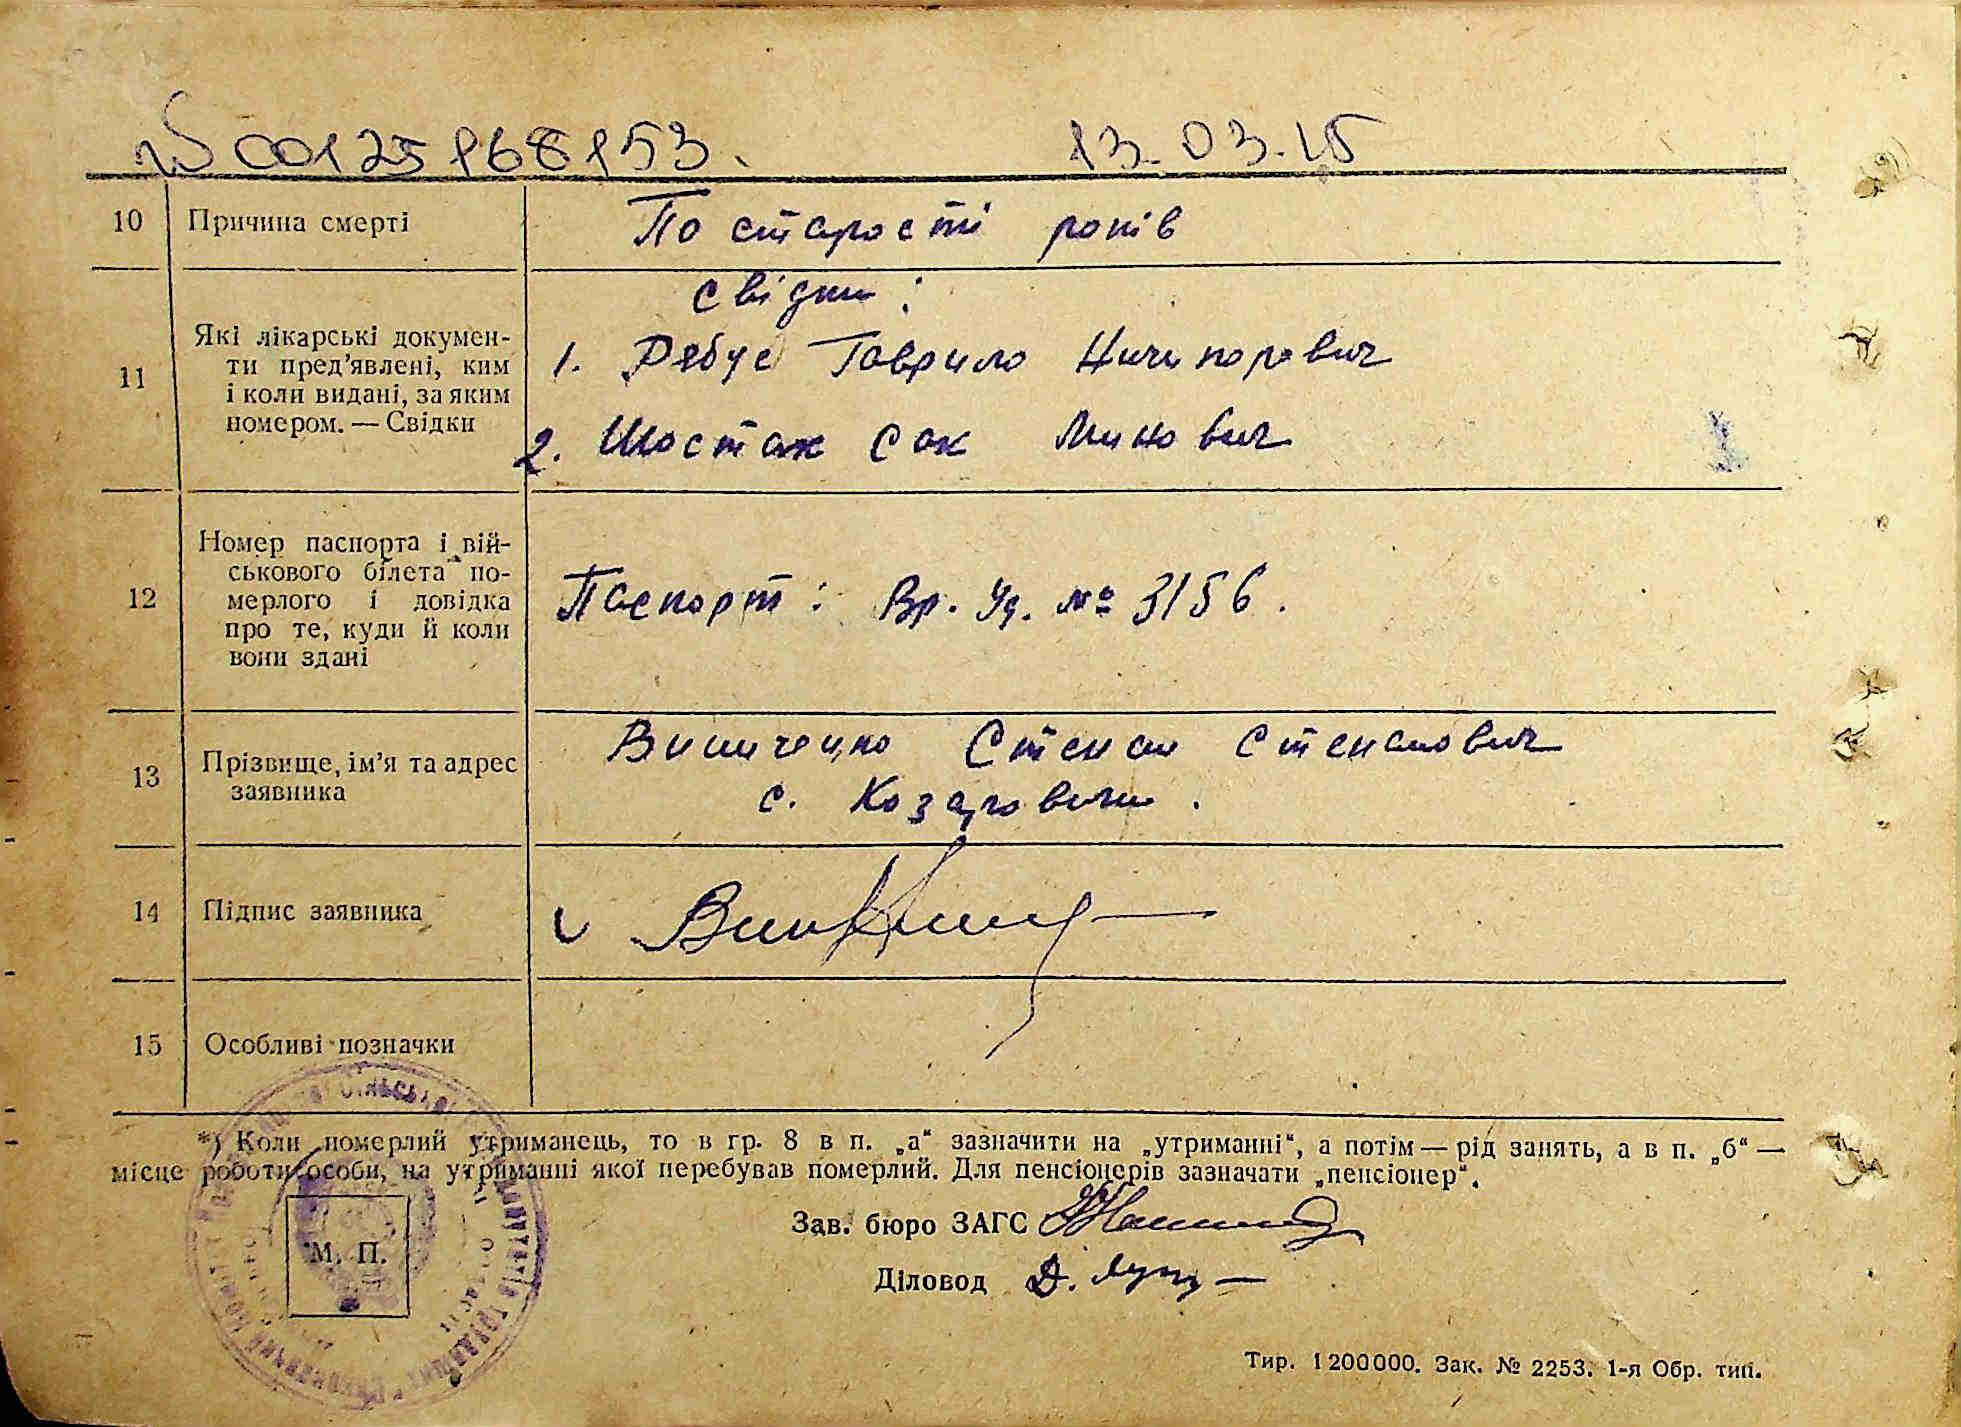 № 00125968153. 13.03.15
10 Причина смерті По старості років
11 Які лікарські докумен-
ти пред’явлені, ким
і коли видані, за яким
номером. — Свідки
свідки:
1. Рябус Гаврило Ничипорович
2. Шостак Сак Минович
12 Номер паспорта і вій-
ськового білета по-
мерлого і довідка
про те, куди й коли
вони здані
Паспорт: Вр. Уд. № 3156.
13 Прізвище, ім’я та адрес
заявника
Степан Степанович
с. Козаровичи.
14 Підпис заявника
15 Особливі позначки
*) Коли померлий утриманець, то в гр. 8 в п. „а“ зазначити на „утриманні“, а потім — рід занять, а в п. „б“ —
місце роботи особи, на утриманні якої перебував померлий. Для пенсіонерів зазначати „пенсіонер“.
Зав. бюро ЗАГС
М. П.
Діловод
Тир. 1200000. Зак. № 2253. 1-я Обр. тип.